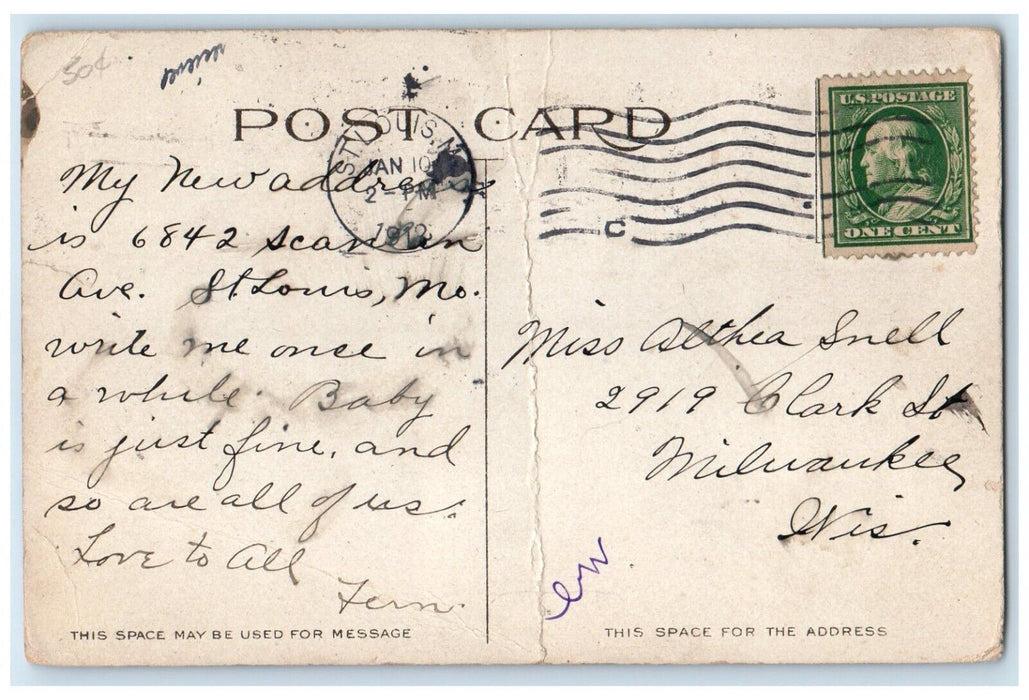 30¢
POST CARD
ST. LOUIS, MO.
JAN 10
2 - PM
C
U.S. POSTAGE
ONE CENT
My New address
is 6842
Ave. St. Louis, Mo.
write me once in
a while. Baby
is just fine, and
so are all of us.
Love to All
Fern.
Miss Althea Snell
2919 Clark St
Milwaukee,
Wis.
THIS SPACE MAY BE USED FOR MESSAGE
THIS SPACE FOR THE ADDRESS